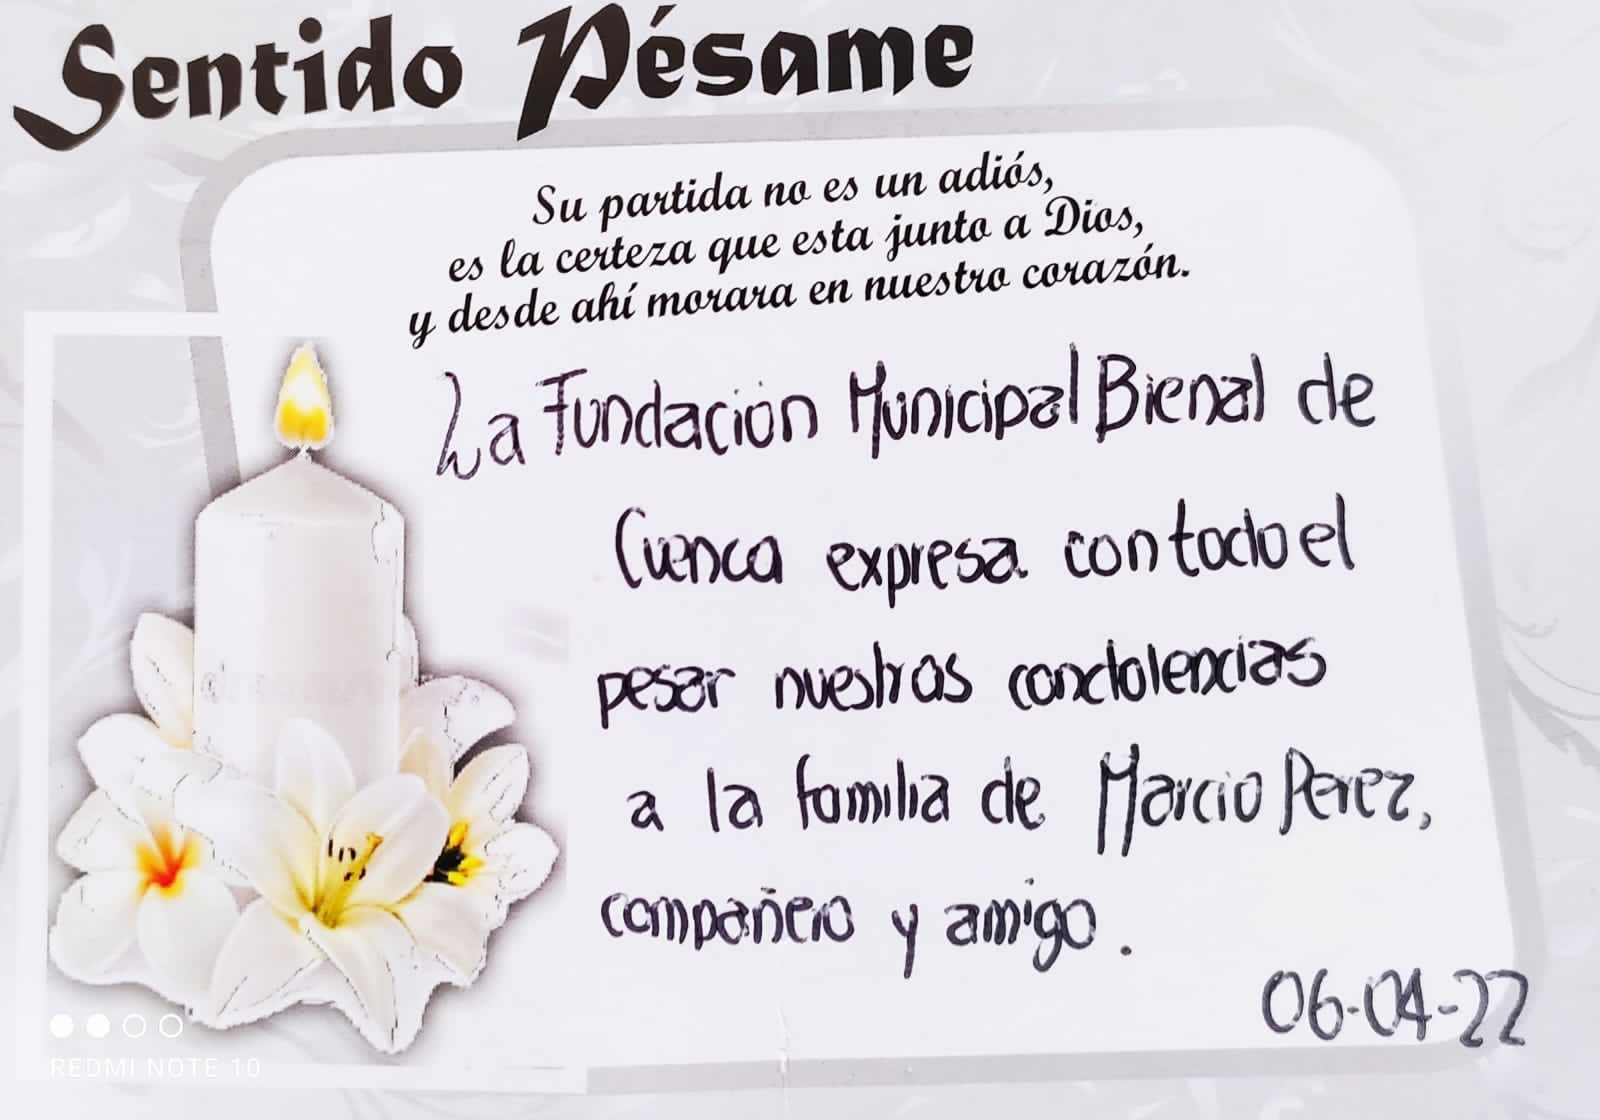 Sentido Pésame
Su partida no es un adiós,
es la certeza que esta junto a Dios,
y desde ahí morara en nuestro corazón.
La Fundación Municipal Bienal de
Cuenca expresa con todo el
pesar nuestras condolencias
a la familia de Marcio Perez,
compañero y amigo.
06-04-22
REDMI NOTE 10